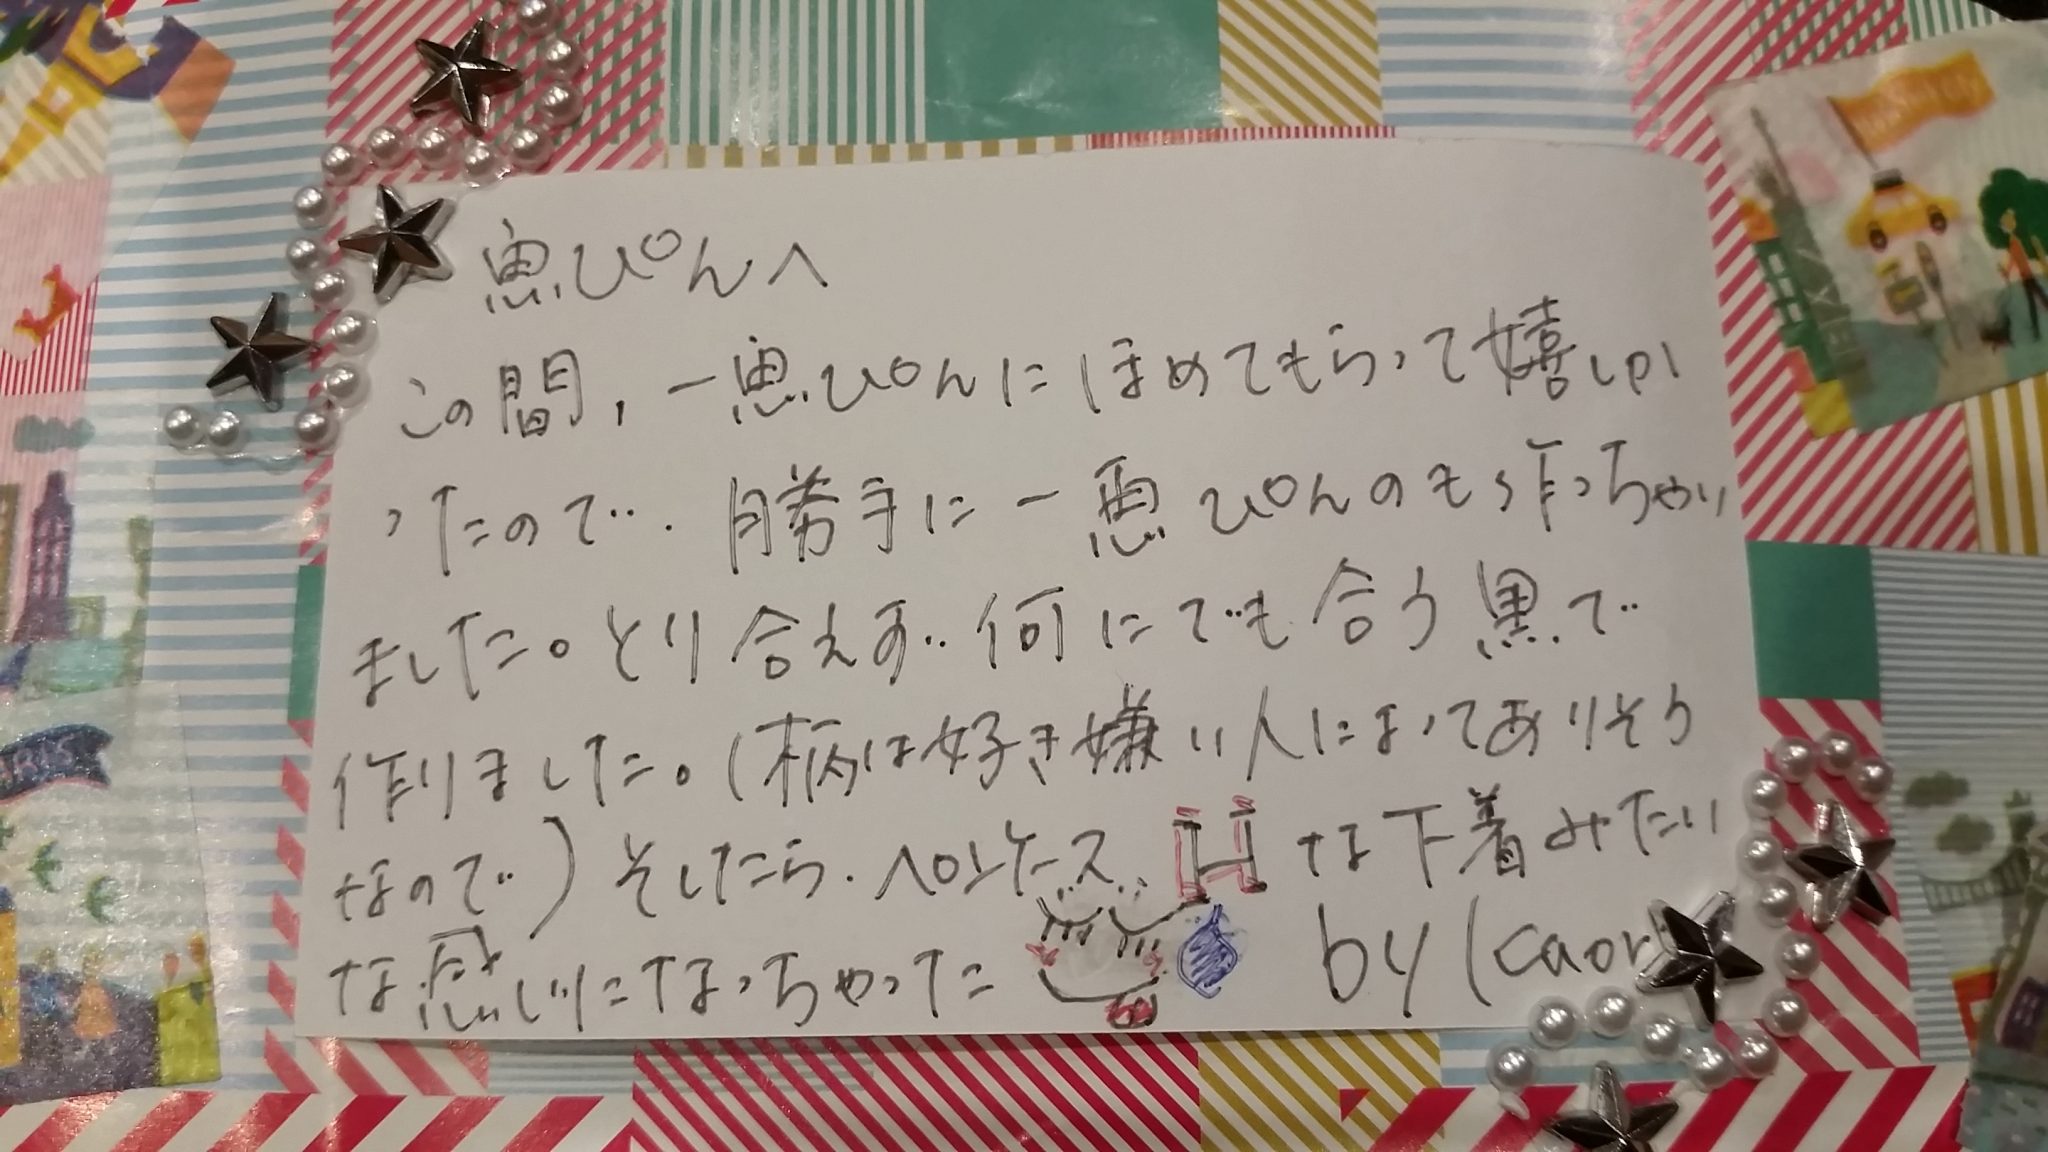 恵ぴんへ
この間,一恵ぴんにほめてもらって嬉しか
ったので、勝手に一恵ぴんのも作っちゃい
ました。とり合えず、何にでも合う黒で
作りました。(柄は好き嫌い人によってありそう
なので)そしたら、ペンケース Hな下着みたい
な感じになっちゃった
by Kaor
ARIS